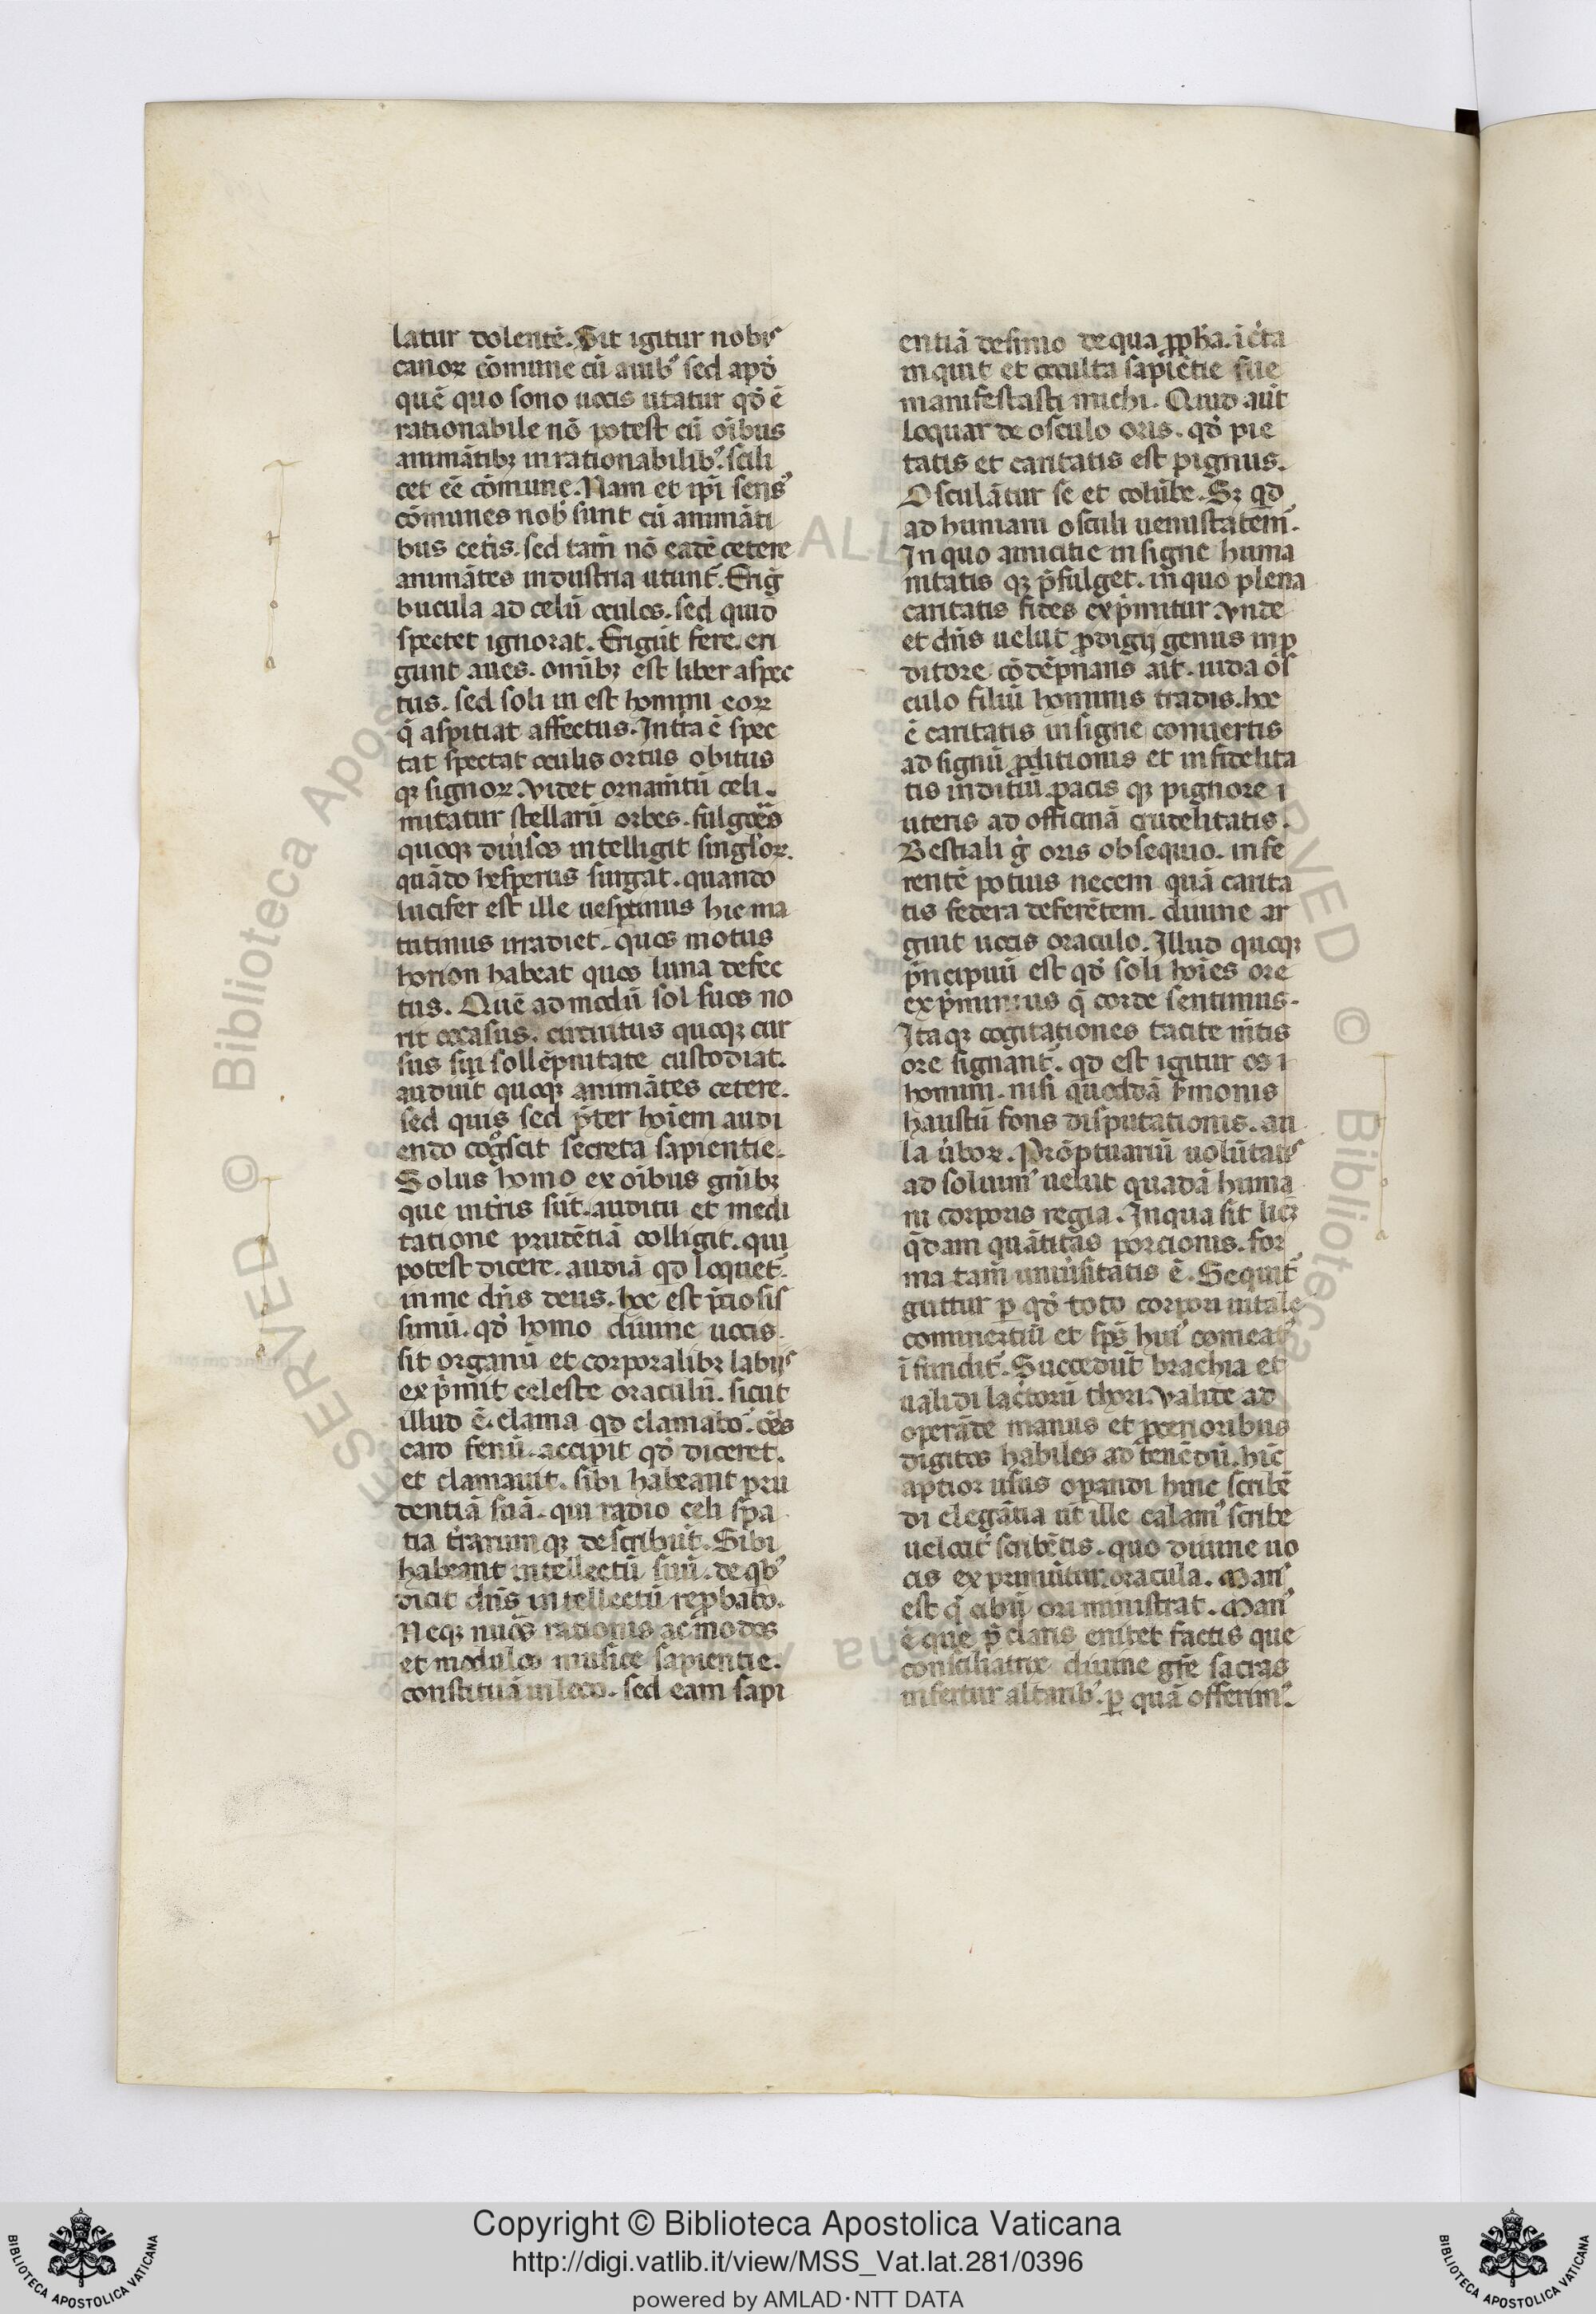 latur dolentē. Sit igitur nobis
canoꝝ cōmune cū auibꝰ sed apd̄
quē quo sono uocis utatur qd̄ ē
rationabile nō potest cū oībus
animātibꝫ inrationabilibꝰ. scili
cet eē cōmune. Nam et ip̄i sensꝰ
cōmunes nob̄ sunt cū animāti
bus cet̄is. sed tam̄ nō eadē cetere
animātes industria utunt᷑. Eriḡ
bucula ad celū oculos. sed quid
spectet ignorat. Erigūt fere. eri
gunt aues. omībꝫ est liber aspec
tus. sed soli in est homini eoꝝ
q̄ aspitiat affectus. Int̄ra ē spec
tat spectat oculis ortus obitus
qꝫ signoꝝ. videt ornam̄tū celi.
mitatur stellarū orbes. fulgōes
quoqꝫ diuīsos intelligit singl̄oꝝ.
quādo hesperus surgat. quando
lucifer est ille uesptinus hic ma
tutinus irradiet. quos motus
horion habeat quos luna defec
tus. Quē ad modū sol suos no
rit occasus. circuitus quoqꝫ cur
sus sui sollēpnitate custodiat.
audiūt quoqꝫ animātes cetere.
sed quis sed p̄ter hoīem audi
endo cog̊scit secreta sapientie.
Solus homo ex oībus gn̄ibꝫ
que int̄ris sūt. auditu et medi
tatione prudētiā colligit. qui
potest dicere. audiā qd loquet᷑
in me dn̄s deus. hoc est p̄tiosis
simū. qd̄ homo diuine uocis
sit organū et corporalibꝫ labiis
exp̄mit celeste oraculū. sicut
illud ē. clama qd clamabo. oēs
caro fenū. accipit qd̄ diceret.
et clamauit. sibi habeant pru
dentiā suā. qui radio celi sp̄a
tia t̄rarum qꝫ describūt. Sibi
habeant intellectū suū. de qbꝰ
dicit dn̄s intellectū reꝓbabo.
Neqꝫ nūos rationis ac modos
et modulos musice sapientie.
constituā in loco. sed eam sapi
entiā desimo de qua ꝓph̄a. īc̄ta
inquit et occulta sapiētie sue
manifestasti michi. Quid aūt
loquar de osculo oris. qd̄ pie
tatis et caritatis est pignus.
Osculātur se et colūbe. Sꝫ qd
ad humani osculi uenustatem.
In quo amicitie insigne huma
nitatis qꝫ p̄fulget. in quo plena
caritatis fides exp̄imitur. vnde
et dn̄s uelut ꝓdigij genus in ꝓ
ditore cōdēpnans ait. iuda os
culo filiū hominis tradis. hoc
ē caritatis insigne conuertis
ad signū ꝓditionis et infidelita
tis inditiū. pacis qꝫ pignore ī
uteris ad officinā crudelitatis.
Bestiali g̊ oris obsequio. infe
rentē potius necem quā carita
tis federa deferētem. diuine ar
guit uocis oraculo. Illud quoqꝫ
p̄ncipuū est qd̄ soli hoīes ore
exp̄mimus q̄ corde sentimus.
Itaqꝫ cogitationes tacite mītis
ore signant᷑. qd est igitur os ī
homini. nisi quoddā s̄monis
haustū fons disputationis. au
la ūboꝝ. Prōptuariū uolūtatis
ad soluimꝰ uelut quadā huma
ni corporis regia. In qua sit licꝫ
q̄dam quātitas porcionis. for
ma tam̄ uniūsitatis ē. Sequit᷑
guttur ꝑ qd̄ toto corpori uitale
commertiū et sp̄s huiꝰ comeatꝰ
ī fundit᷑. Succedūt brachia et
ualidi lac̄torū thori. valide ad
operāde manus et ꝓcerioribus
digitos habiles ad tenēdū. hīc
aptior usus oꝑandi hinc scribē
di elegātia ut̄ ille calamꝰ scribe
uelocit᷑ scribētis. quo diuine uo
cis exprimūtur oracula. Manꝰ
est q̄ cibū ori ministrat. Manꝰ
ē que p̄claris enitet factis que
consiliatrix diuine gr̄e sacras
infertur altaribꝰ. ꝑ quā offerimꝰ.
Copyright © Biblioteca Apostolica Vaticana
http://digi.vatlib.it/view/MSS_Vat.lat.281/0396
powered by AMLAD·NTT DATA